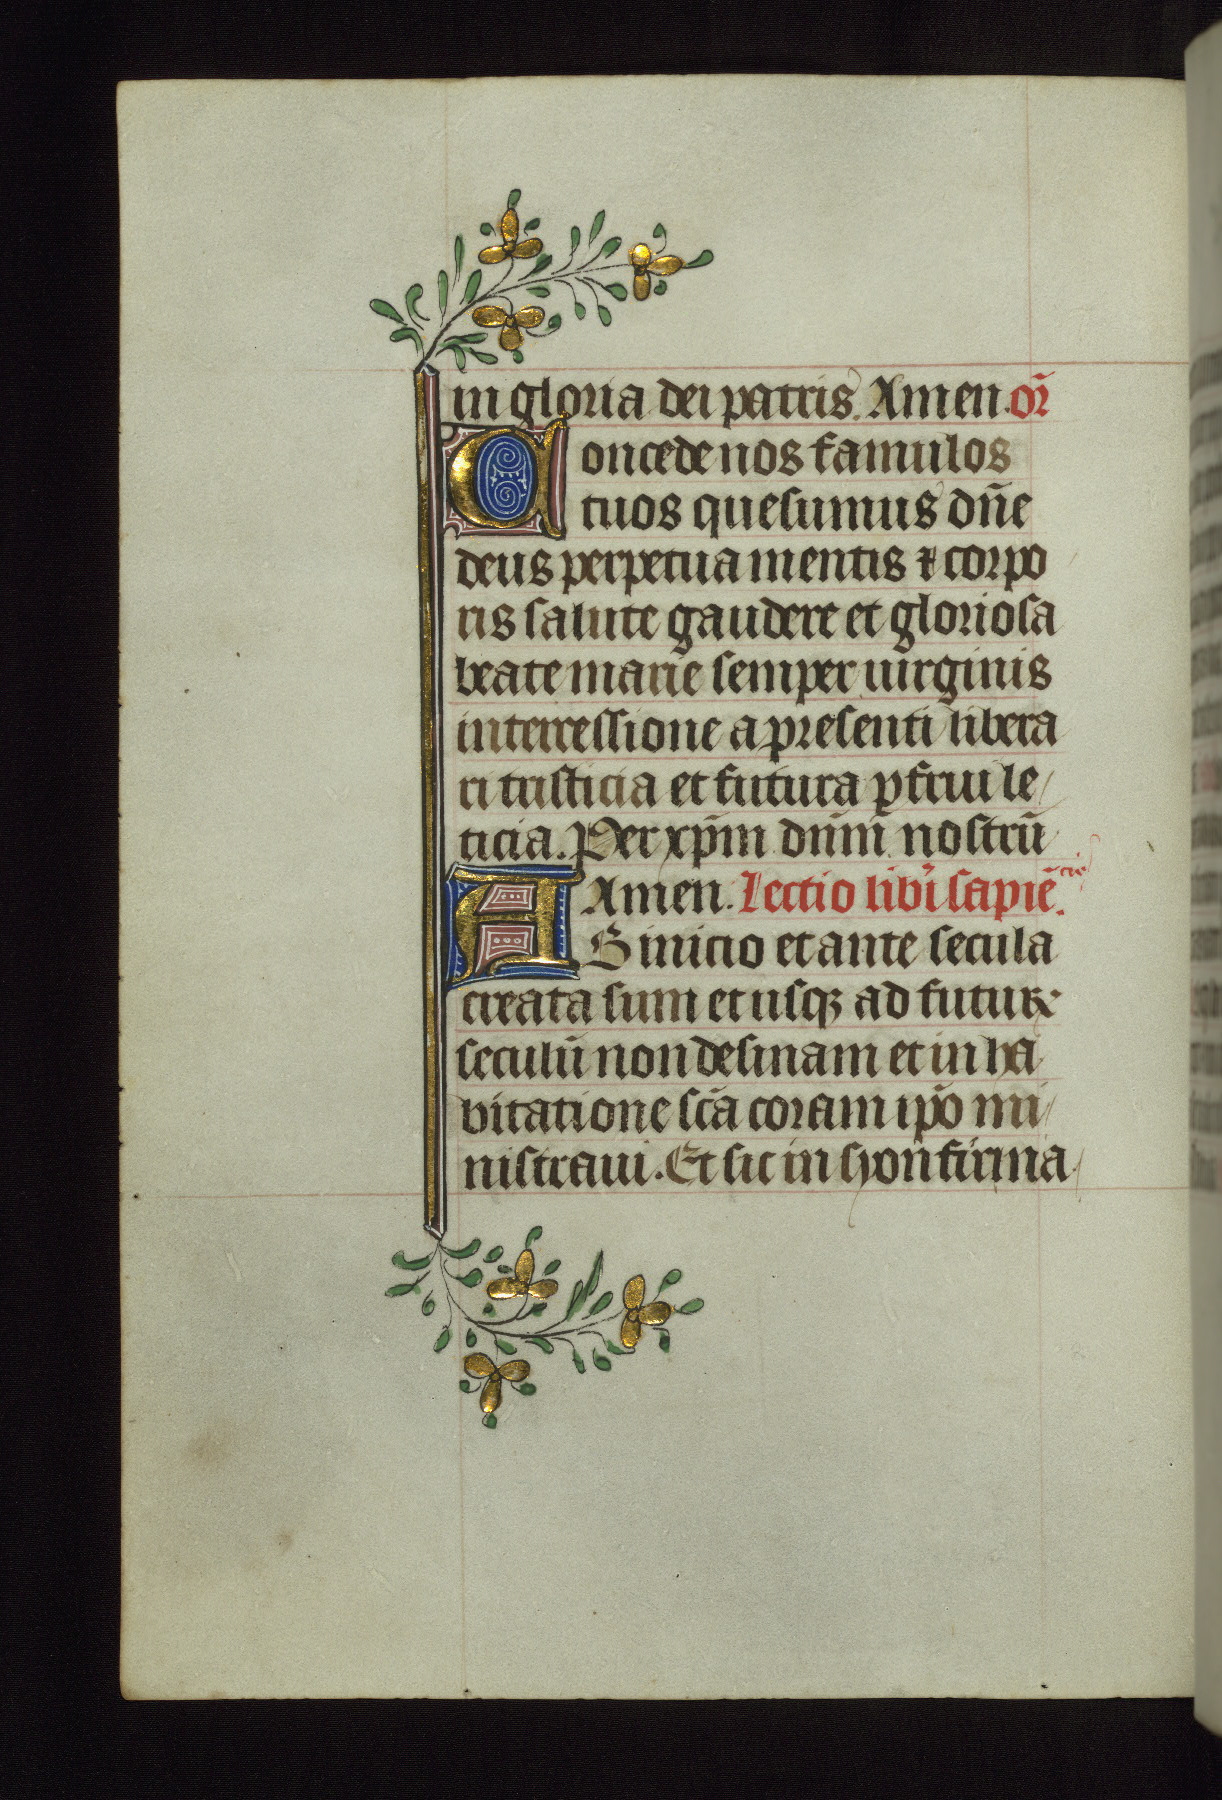 in gloria dei patris. Amen. or̄
Concede nos famulos
tuos quesumus dn̄e
deus perpetua mentis ⁊ corpo
ris salute gaudere et gloriosa
beate marie semper uirginis
intercessione a presenti libera
ri tristicia et futura ꝑfrui le
ticia. Per xp̄m dn̄m nostrū
Amen. Lectio libri sapiē cie.
AB inicio et ante secula
creata sum et usqꝫ ad futuꝝ
seculū non desinam et in ha
bitatione scā coram ip̄o mi
nistraui. Et sic in syon firma